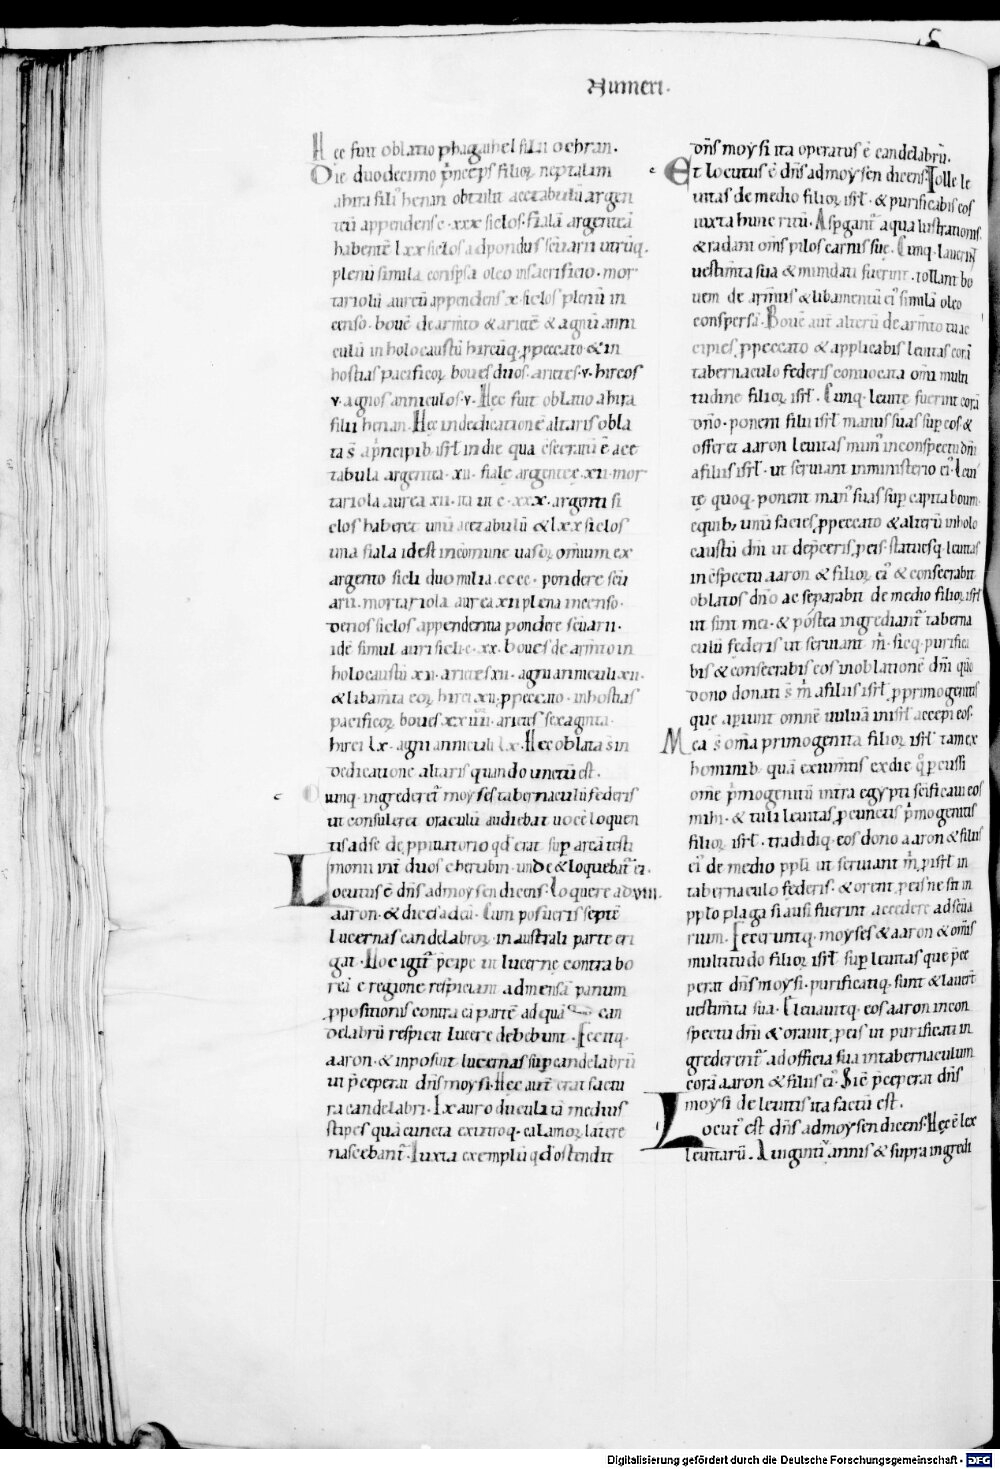 Numeri.
Hęc fuit oblatio phagaihel filii ochran.
Die duodecimo p̄nceps filioꝝ neptalim
ahira filiꝰ henan obtulit acetabulū argen
teū appendens c·xxx siclos· fialā argenteā
habentē lxx siclos ad pondus sc̄uarii utrūq.
plenū simila consp̄sa oleo in sacrificio· mor
tariolū aureū appendens x· siclos plenū in
censo· bouē de arm̄to & arietē & agnū anni
culū in holocaustū hircūq· ꝓ peccato & in
hostias pacificoꝝ boues duos· arietes ·v· hircos
v· agnos anniculos ·v· Hęc fuit oblatio ahira
filii henan· Hęc in dedicationē altaris obla
ta s̄ a p̄ncipib isrl̄ in die qua c̄secratū ē ace
tabula argentea ·xii· fialę argenteę ·xii· mor
tariola aurea xii· ita ut c·xxx· argenti si
clos haberet unū acetabulū & lxx siclos
una fiala id est in cōmune uasoꝝ omnium ex
argento sicli duo milia ·cccc· pondere sc̄u
arii· mortariola aurea xii plena incenso·
denos siclos appendentia pondere sc̄uarii·
idē simul auri sicli c·xx· boues de arm̄to in
holocaustū xii· arietes xii· agni anniculi xii·
& libam̄ta eoꝝ hirci xii ꝓ peccato· in hostias
pacificoꝝ boues xxiiii arietes sexaginta·
hirci lx· agni anniculi lx· Hęc oblata s̄ in
dedicatione altaris quando unctū est.
Cumq· ingrederet̄ moyses tabernaculū fęderis
ut consuleret oraculū audiebat uocē loquen
tis ad se de ꝓpitiatorio qd̄ erat sup̄ arcā testi
monii int̄ duos cherubin· unde & loquebat̄ ei·
Locutus ē dn̄s ad moysen dicens· Loquere ad VIII.
aaron· & dices ad eū· Cum posueris septē
lucernas candelabroꝝ· in australi parte eri
gat· Hoc igit̄ p̄cipe ut lucernę contra bo
reā e regione respiciant ad mensā panum
ꝓpositionis contra eā partē ad quā can
delabrū respicit lucere debebunt· Fecitq·
aaron· & inposuit lucernas sup candelabrū
ut p̄ceperat dn̄s moysi· Hęc aut̄ erat factu
ra candelabri· Ex auro ductili tā medius
stipes quā cuncta ex utroq· calamoꝝ latere
nascebant̄· Iuxta exemplū qd̄ ostendit
dn̄s moysi ita operatus ē candelabrū.
Et locutus ē dn̄s ad moysen dicens· Tolle le
uitas de medio filioꝝ isrl̄· & purificabis eos
iuxta hunc ritū· Aspgant̄ aqua lustrationis
& radant om̄s pilos carnis suę· Cumq· lauerint
uestim̄ta sua & mundati fuerint· tollant bo
uem de arm̄tis & libamentū eiꝰ similā oleo
conspersā· Bouē aut̄ alterū de arm̄to tu ac
cipies ꝓ peccato & applicabis leuitas corā
tabernaculo fęderis conuocata om̄i multi
tudine filioꝝ isrl̄· Cumq· leuitę fuerint corā
dn̄o· ponent filii isrl̄ manus suas sup eos &
offeret aaron leuitas munꝰ in conspectu dn̄i
a filiis isrl̄· ut seruiant in ministerio eiꝰ· Leui
tę quoq· ponent manꝰ suas sup capita boum·
e quib; unū facies ꝓ peccato & alterū in holo
caustū dn̄i ut dep̄ceris ꝓ eis· statuesq· leuitas
in c̄spectu aaron & filioꝝ eiꝰ & consecrabis
oblatos dn̄o ac separabis de medio filioꝝ isrl̄
ut sint mei· & postea ingrediant̄ taberna
culū fęderis ut seruiant m̄· sicq· purifica
bis & consecrabis eos in oblationē dn̄i· qūo
dono donati s̄ m̄ a filiis isrl̄ ꝓ primogenitis
que apiunt omnē uuluā in isrl̄ accepi eos·
Mea s̄ om̄a primogenita filioꝝ isrl̄ tam ex
hominib· quā ex ium̄tis ex die qͦ ꝑcussi
om̄e p̄mogenitū in tra egypti sc̄ificaui eos
mihi· & tuli leuitas ꝓ cunctis p̄mogenitis
filioꝝ isrl̄· tradidiq· eos dono aaron & filiis
eiꝰ de medio ppl̄i ut seruiant m̄ ꝓ isrl̄ in
tabernaculo fęderis· & orent ꝓ eis ne sit in
pplo plaga si ausi fuerint accedere ad sc̄ua
rium· Feceruntq· moyses & aaron & om̄is
multitudo filioꝝ isrl̄ sup leuitas que p̄ce
perat dn̄s moysi· purificatiq· sunt & lauer̄t
uestim̄ta sua· Eleuauitq· eos aaron in con
spectu dn̄i & orauit ꝓ eis ut purificati in
grederent̄ ad officia sua in tabernaculum
corā aaron & filiis eiꝰ· Sic p̄ceperat dn̄s
moysi de leuitis ita factū est.
Locutꝰ est dn̄s ad moysen dicens· Hęc ē lex
leuitarū· A uiginti v annis & supra ingredi
Digitalisierung gefördert durch die Deutsche Forschungsgemeinschaft - DFG